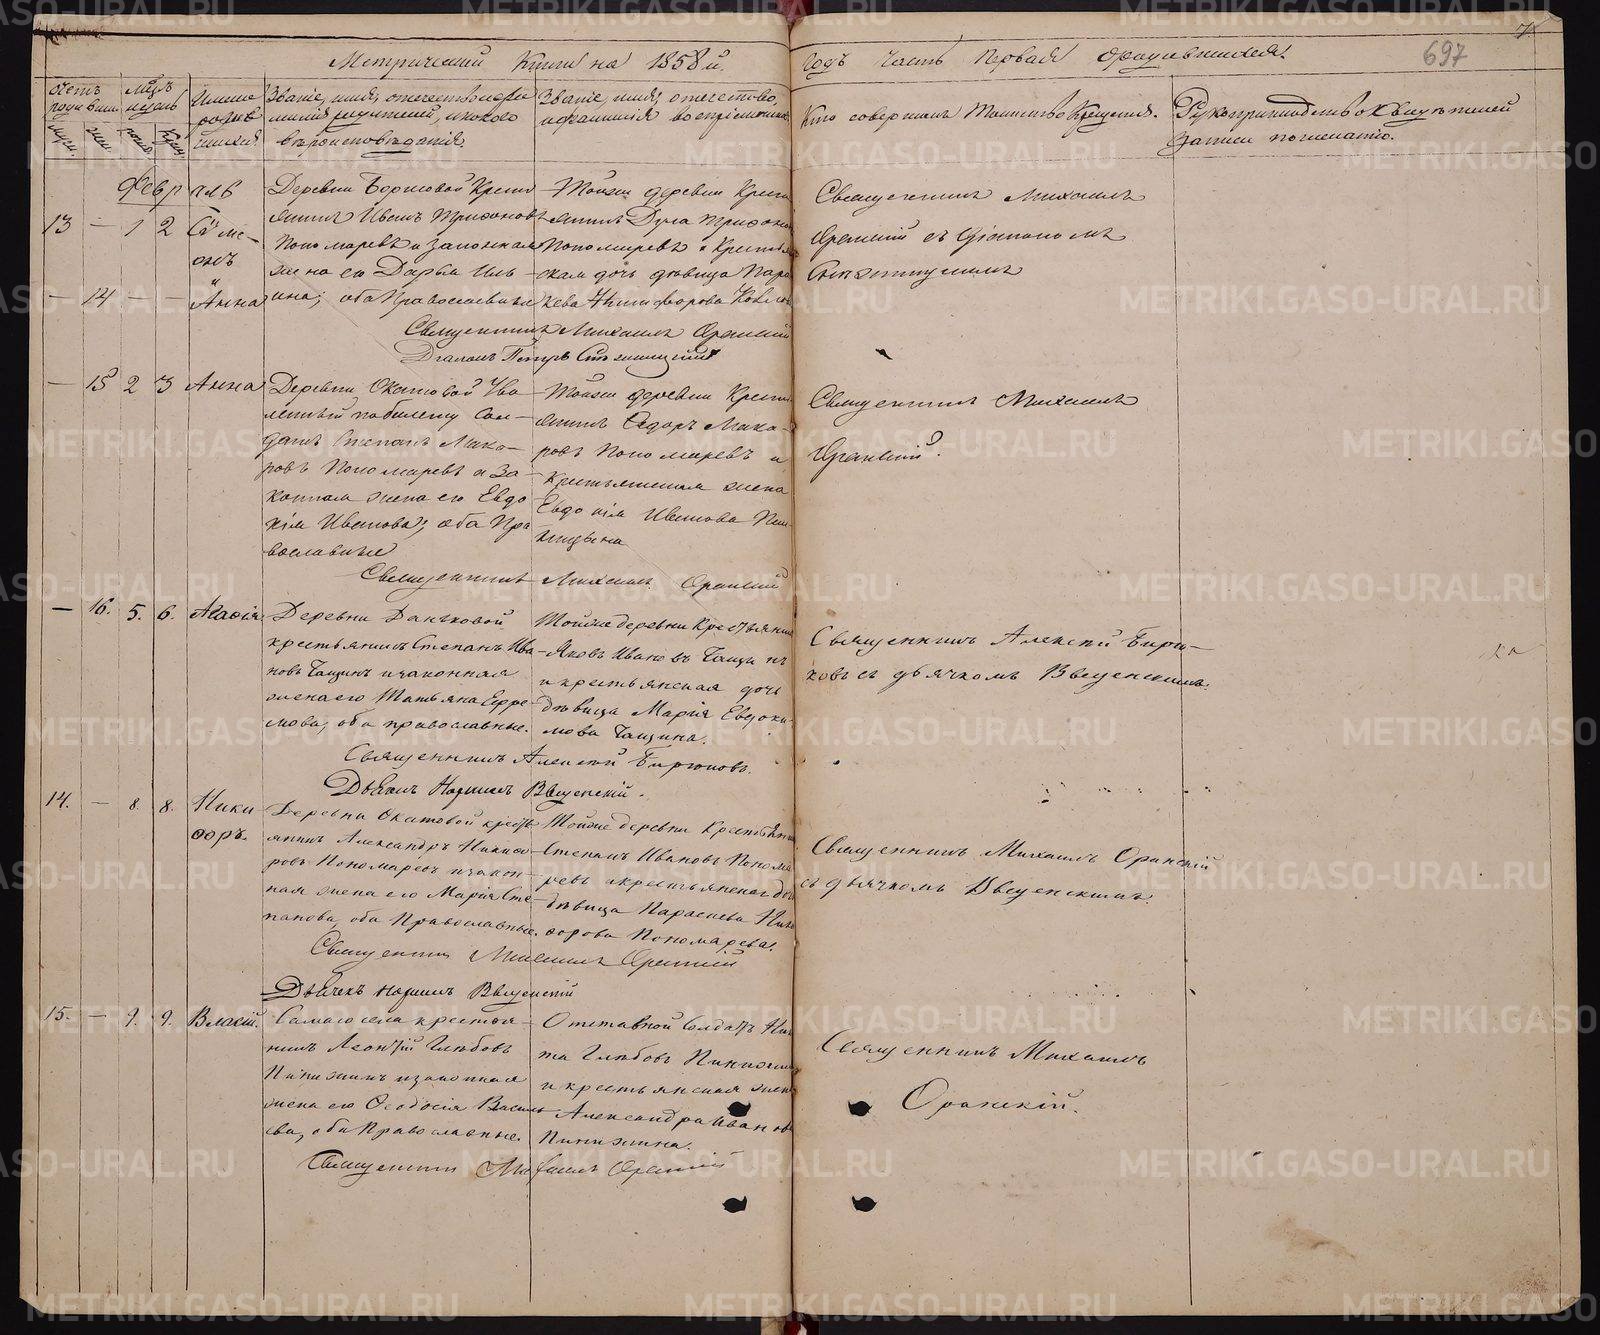 Метрической Книги на 1858й.
годъ часть первая о родившихся.
697
Счетъ родившихся
Мѣсяцъ и день
Имена родившихся
Званіе, имя, отчество и фамилія родителей, и какого вѣроисповѣданія
Званіе, имя, отчество, и фамилія воспріемниковъ
Кто совершалъ Таинство Крещенія.
Рукоприкладство свидѣтелей записи по желанію.
Муж.
Жен.
рожд.
Крещ.
Февраль
13 — 1 2
Симеонъ
— 14 — —
Анна
Деревни Борисовой Крестьянинъ Иванъ Трифоновъ
Пономаревъ и Законная
жена его Дарья Иль-
ина; оба Православные
Тойже деревни Крестьянинъ Трифоновъ
Пономаревъ и Крестьянская дочь дѣвица Параскева
Священникъ Михаилъ
Оранскій съ Діакономъ
Священникъ Михаилъ Оранскій
Діаконъ Петръ
— 15 2 3 Анна
Деревни Окатовой Ува-
ленный по билету Сол-
датъ Степанъ Мака-
ровъ Пономаревъ и За-
конная жена его Евдо-
кія Иванова; оба Пра-
вославные
Тойже деревни Крестьянинъ Ѳедоръ Мака-
ровъ Пономаревъ и
крестьянская жена
Евдокія Иванова
Священникъ Михаилъ
Оранскій.
Священникъ Михаилъ Оранскій
— 16. 5. 6. Агафія
Деревни Даньковой
крестьянинъ Степанъ Ива-
новъ Тащинъ и законная
жена его Татьяна Ефре-
мова, оба православные.
Тойже деревни Крестьянинъ
Яковъ Ивановъ Тащинъ
и крестьянская дочь
дѣвица Марія Евдоки-
мова Тащина.
Священникъ Алексѣй Бирю-
ковъ съ дьячкомъ Введенскимъ.
Священникъ Алексѣй Бирюковъ.
Дьячекъ Введенскій.
14. — 8. 8.
Ники
форъ.
Деревни Окатовой крестьянинъ Александръ Никифоровъ Пономаревъ и закон-
ная жена его Марія Сте-
панова, оба Православные.
Тойже деревни Крестьянинъ
Степанъ Ивановъ Пономаревъ и крестьянская дочь
дѣвица Параскева Никифорова Пономарева.
Священникъ Михаилъ Оранскій
съ дьячкомъ Введенскимъ
Священникъ Михаилъ Оранскій
Дьячекъ Введенскій
15. — 9. 9. Власій.
Самаго села крестья-
нинъ Леонтій Глѣбовъ
и законная
жена его Ѳеодосія Василь-
ева, оба Православные.
Отставной Солдатъ Ники-
та Глѣбовъ
и крестьянская жена
Александра Иванова
Священникъ Михаилъ
Оранскій.
Священникъ Михаилъ Оранскій
METRIKI.GASO-URAL.RU